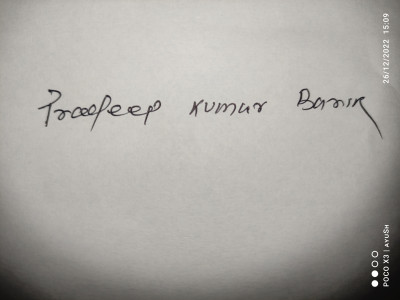 Pradeep Kumar Barik
26/12/2022 15:09
POCO X3 | AYUSH